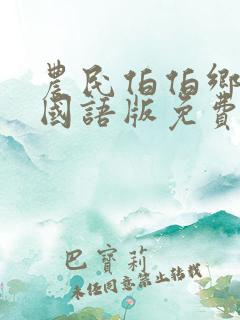 農民伯伯鄉
國語版免費
巴寶莉
未任同意禁止转载